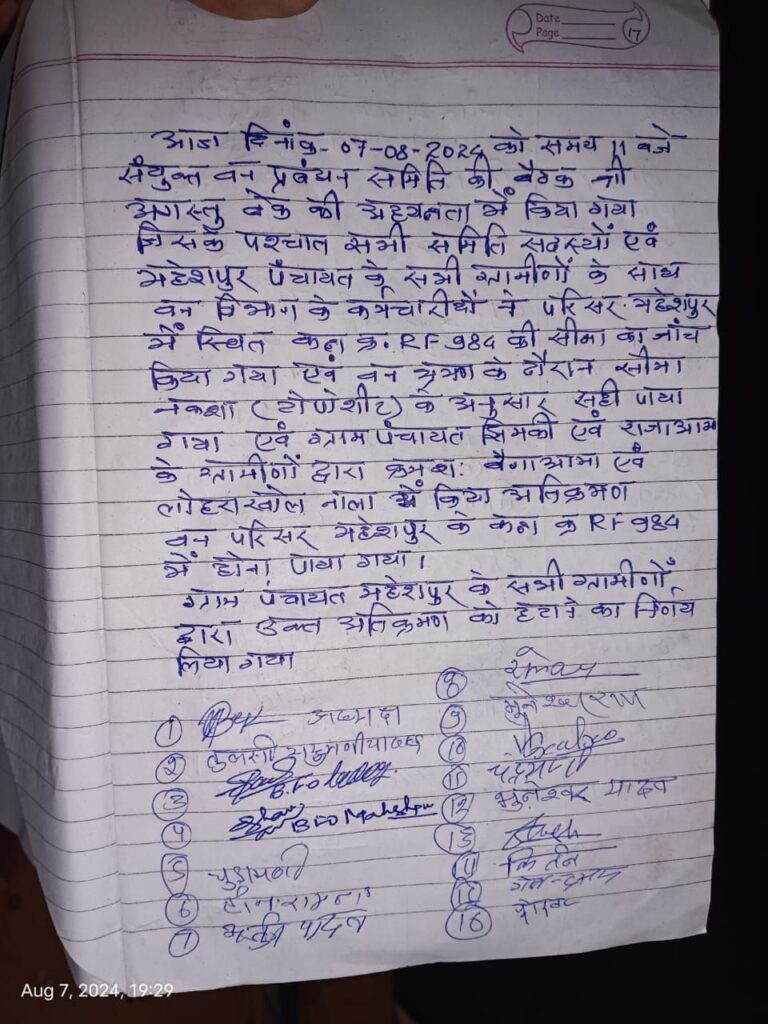 Date
Page 17
आज दिनांक- 07-08-2024 को समय 11 बजे
संयुक्त वन प्रबंधन समिति की बैठक श्री
अगस्तु बेक की अध्यक्षता में किया गया
जिसके पश्चात सभी समिति सदस्यों एवं
महेशपुर पंचायत के सभी ग्रामीणों के साथ
वन विभाग के कर्मचारीयों ने परिसर-महेशपुर
में स्थित कक्ष क्र. RF 984 की सीमा का जाँच
किया गया एवं वन भ्रमण के दौरान सीमा
नक्शा (टोपोशीट) के अनुसार सही पाया
गया एवं ग्राम पंचायत सिमकी एवं राजाआमा
के ग्रामीणों द्वारा क्रमशः बैगाआमा एवं
लोहराखोल नाला में किया अतिक्रमण
वन परिसर महेशपुर के कक्ष क्र RF 984
में होना पाया गया।
ग्राम पंचायत महेशपुर के सभी ग्रामीणों
द्वारा उक्त अतिक्रमण को हटाने का निर्णय
लिया गया
1 अध्यक्ष
2
3 B.F.O
4 BFO Maheshpur
5 चुड़ामनी
6
7 यादव
8
9
10
11
12 भुनेश्वर यादव
13
14 किर्तन
15
16
Aug 7, 2024, 19:29